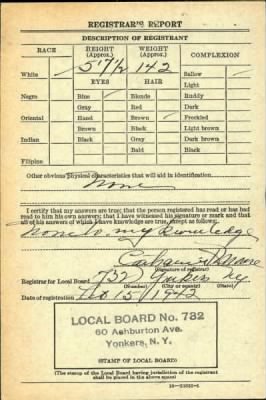 REGISTRAR'S REPORT
DESCRIPTION OF REGISTRANT
RACE HEIGHT (Approx.) WEIGHT (Approx.) COMPLEXION
White 5 7½ 142 Sallow
EYES HAIR Light
Negro Blue Blonde Ruddy
Gray Red Dark
Oriental Hazel Brown Freckled
Brown Black Light brown
Indian Black Gray Dark brown
Bald Black
Filipino
Other obvious physical characteristics that will aid in identification
None
I certify that my answers are true; that the person registered has read or has had
read to him his own answers; that I have witnessed his signature or mark and that
all of his answers of which I have knowledge are true, except as follows:
None to my knowledge
(Signature of registrar)
Registrar for Local Board 732 Yonkers NY
(Number) (City or county) (State)
Date of registration 1942
LOCAL BOARD No. 732
60 Ashburton Ave.
Yonkers, N.Y.
(STAMP OF LOCAL BOARD)
(The stamp of the Local Board having jurisdiction of the registrant
shall be placed in the above space)